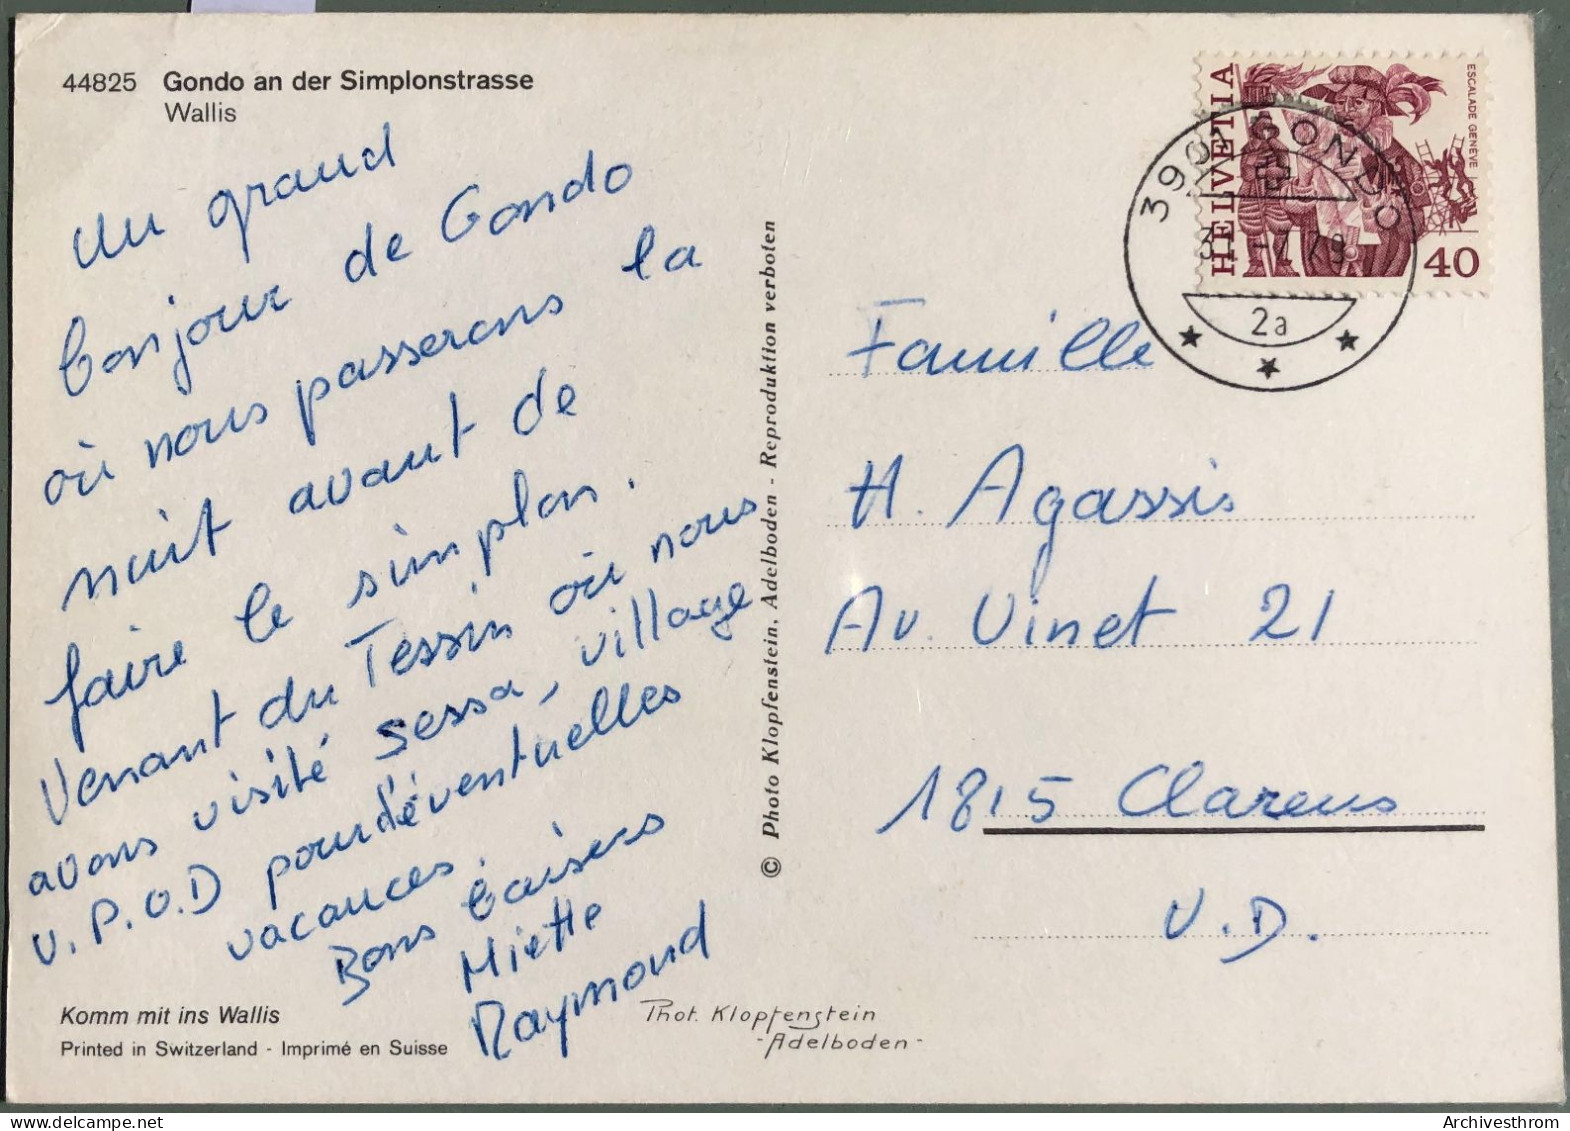 44825 Gondo an der Simplonstrasse
Wallis
Un grand
bonjour de Gondo
où nous passerons la
nuit avant de
faire le simplon.
Venant du Tessin où nous
avons visité sessa, village
U.P.O.D pour d'éventuelles
vacances.
Bons baisers
Miette
Raymond
Komm mit ins Wallis
Printed in Switzerland - Imprimé en Suisse
Phot. Klopfenstein
- Adelboden -
© Photo Klopfenstein, Adelboden - Reproduktion verboten
HELVETIA
ESCALADE GENÈVE
40
3901 GONDO
-7.79
2a
Famille
H. Agassis
Av. Vinet 21
1815 Clarens
V.D.
Archivesthrom